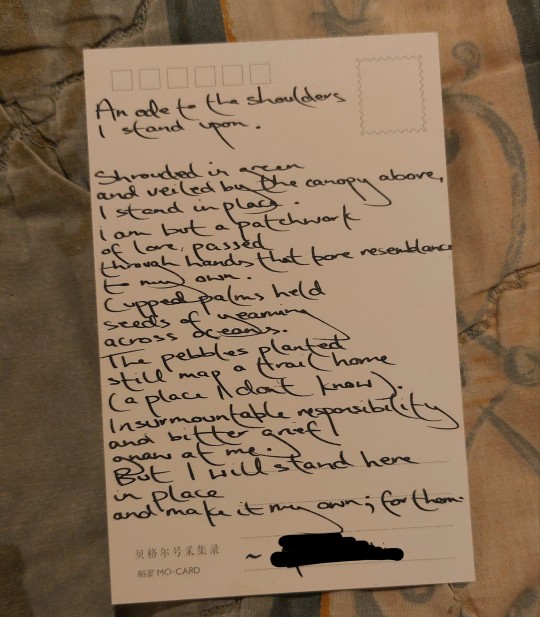 An ode to the shoulders
I stand upon.
Shrouded in green
and veiled by the canopy above,
I stand in place.
i am but a patchwork
of love, passed
through hands that bore resemblance
to my own.
Cupped palms held
seeds of yearning
across oceans.
The pebbles planted
still map a trail home
(a place I don't know).
Insurmountable responsibility
and bitter grief
gnaw at me.
But I will stand here
in place
and make it my own; for them.
贝格尔号采集录
~
陌派 MO·CARD